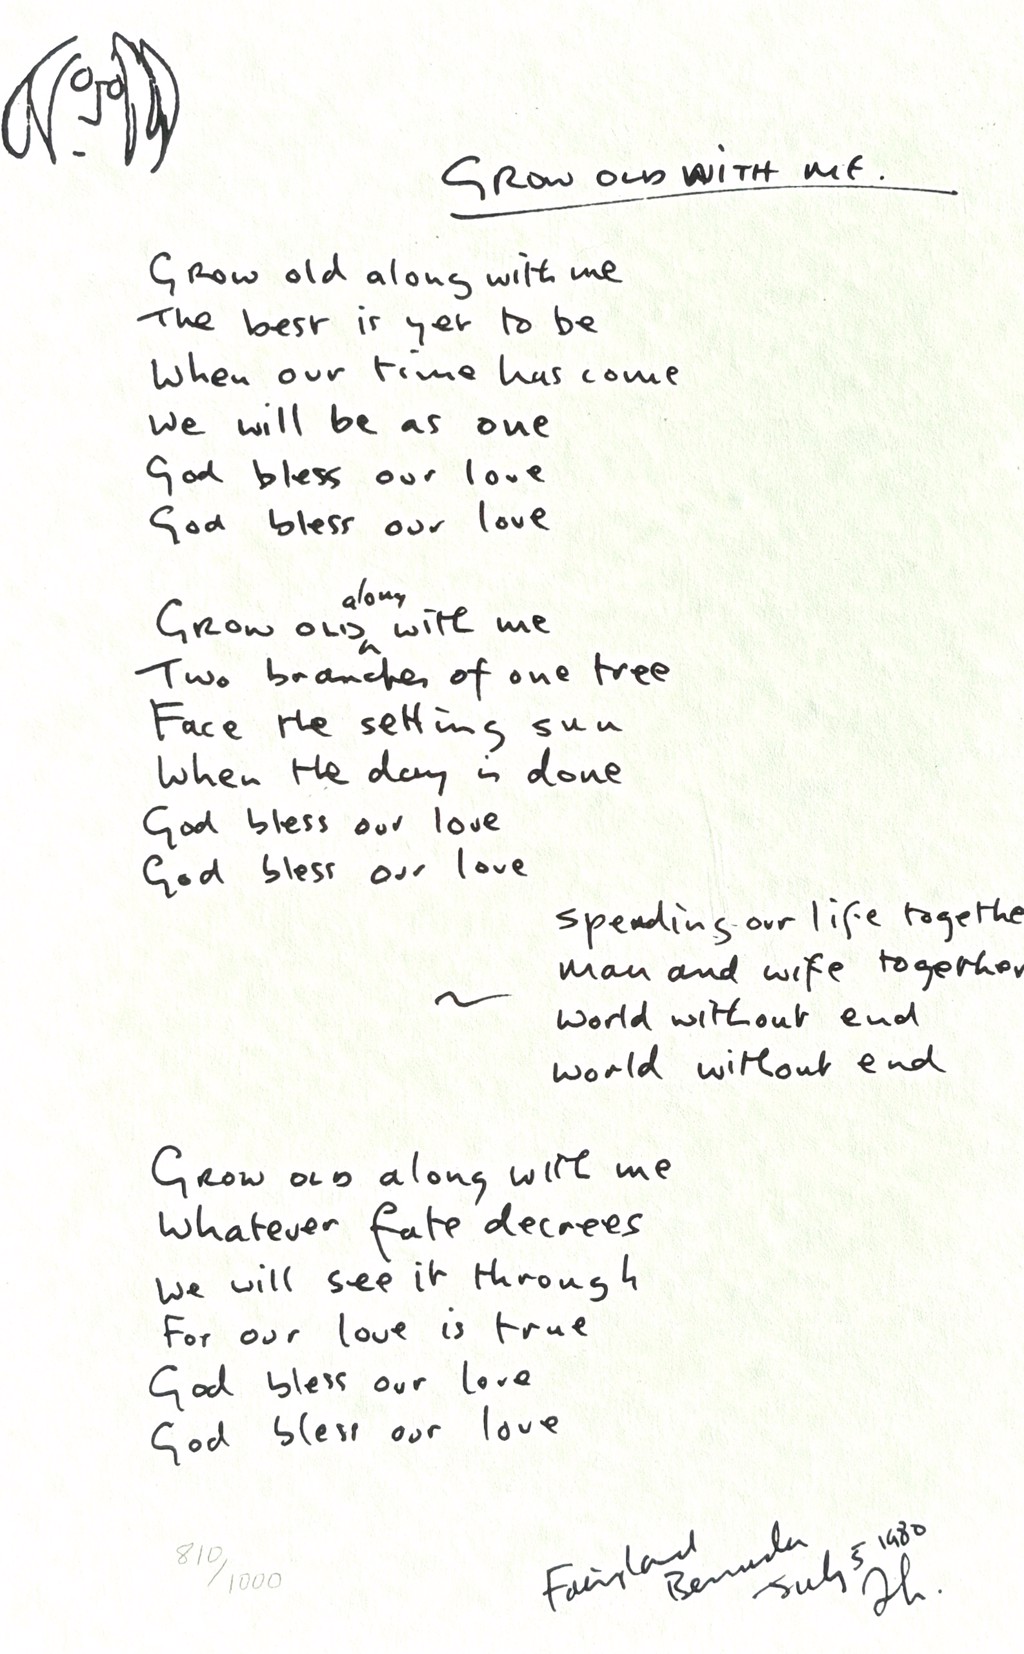 GROW OLD WITH ME.
Grow old along with me
The best is yet to be
When our time has come
We will be as one
God bless our love
God bless our love
along
GROW OLD ^ with me
Two branches of one tree
Face the setting sun
When the day is done
God bless our love
God bless our love
spending our life togethe
man and wife together
world without end
world without end
GROW OLD along with me
Whatever fate decrees
We will see it through
For our love is true
God bless our love
God bless our love
810/1000
Fairyland Bermuda July 5 1980